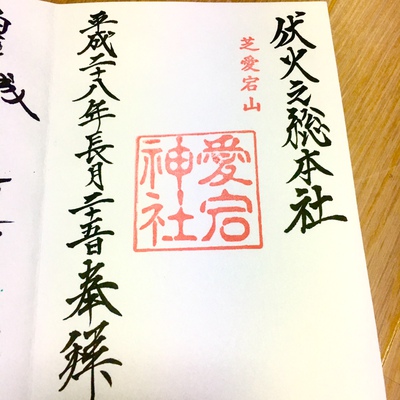 伏火之総本社
芝愛宕山
愛宕
神社
平成二十八年長月二十五日奉拝